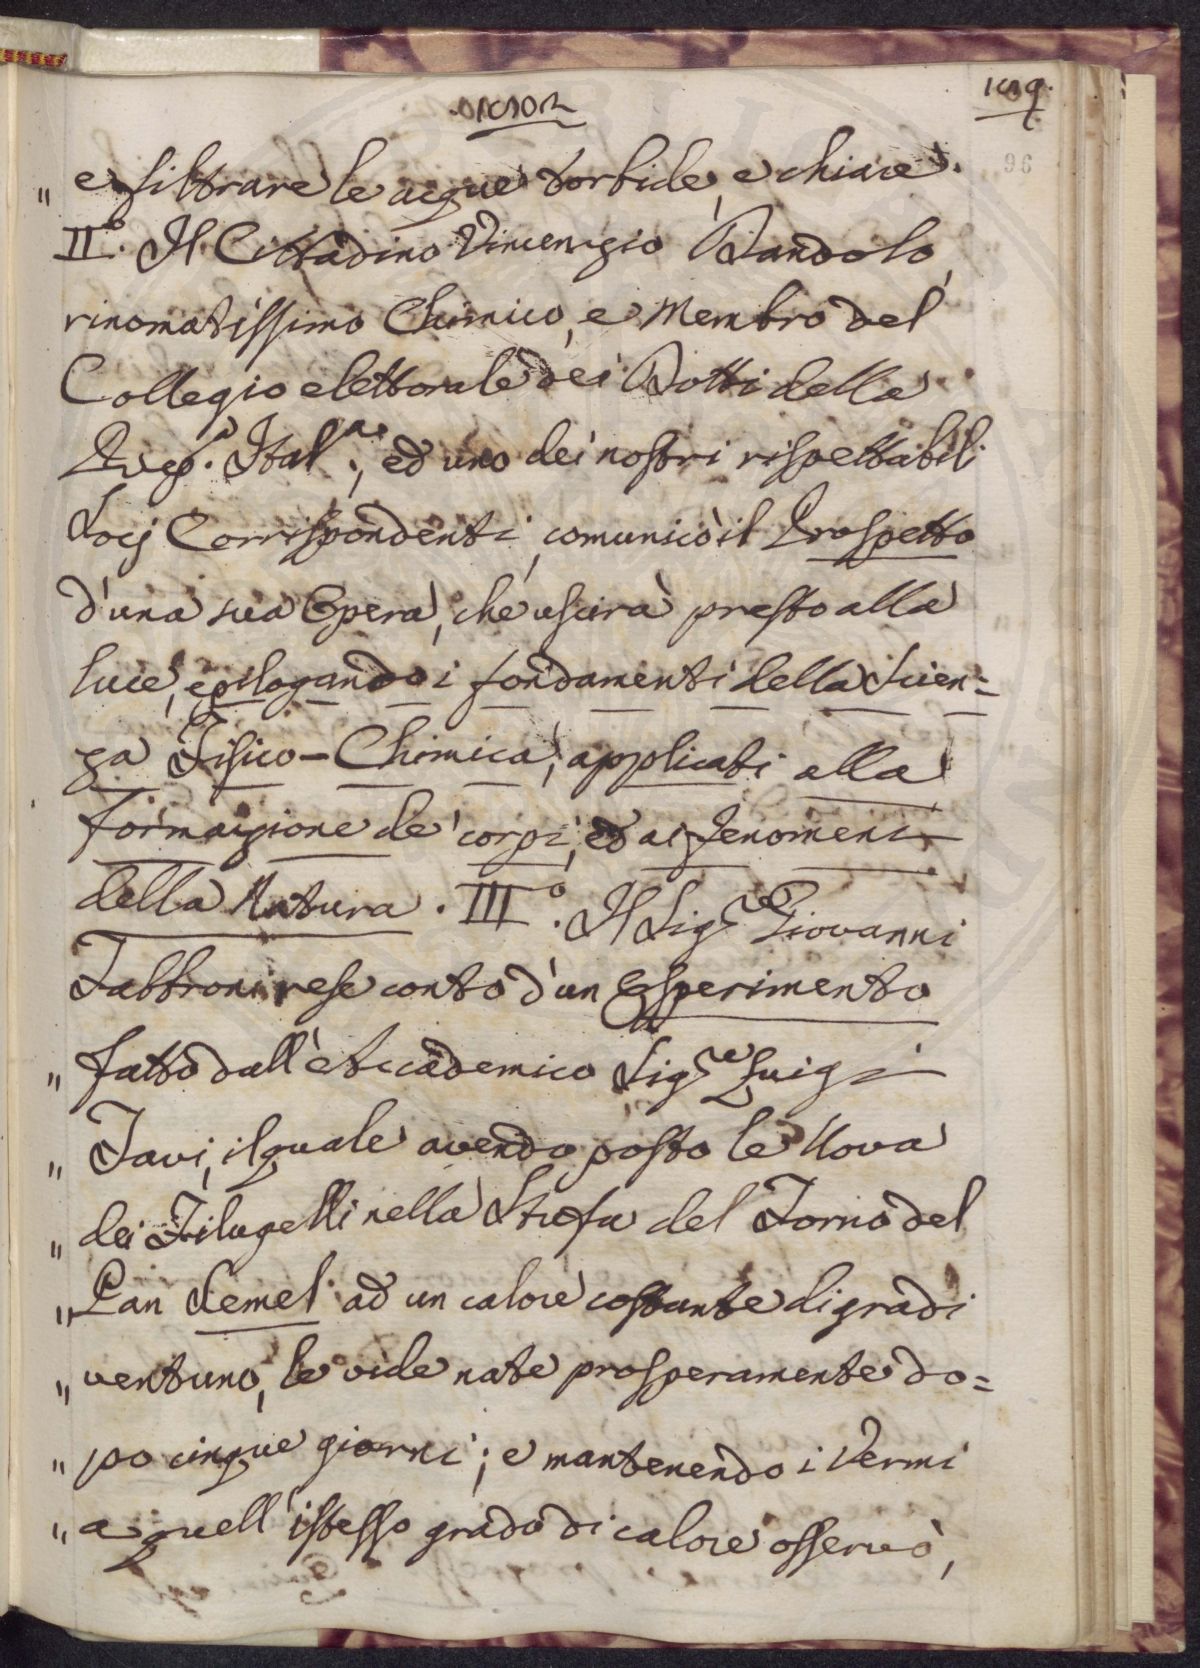 159.
96
„ e filtrare le acque torbide, e chiare.
II.º Il Cittadino Vincenzio Dandolo,
rinomatissimo Chimico, e Membro del
Collegio elettorale dei Dotti della
Rep.ª Ital.ª, ed uno dei nostri rispettabili
Socj Corrispondenti, comunicò il Prospetto
d'una sua Opera, che uscirà presto alla
luce, epilogando i fondamenti della Scien=
za Fisico-Chimica, applicati alla
formazione de' corpi, ed ai Fenomeni
della Natura. III.º Il Sig.re Giovanni
Fabbroni rese conto d'un Esperimento
„ fatto dall'Accademico Sig.re Luigi
„ Tavi, il quale avendo posto le Uova
„ dei Filugelli nella Stufa del Forno del
„ Pan Semel ad un calore costante di gradi
„ ventuno, le vide nate prosperamente do=
„ po cinque giorni; e mantenendo i Vermi
„ a quell'istesso grado di calore osservò,